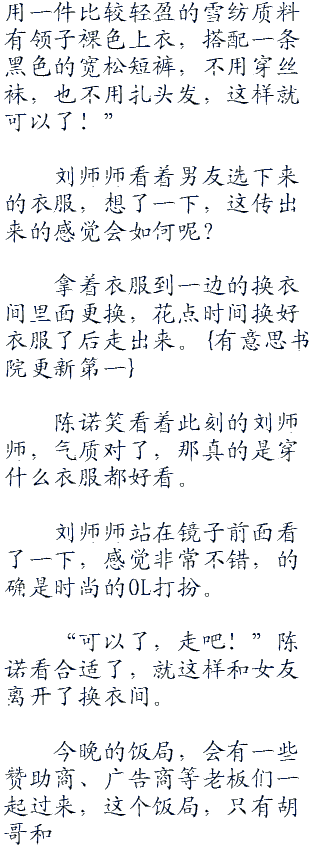 用一件比较轻盈的雪纺质料
有领子裸色上衣，搭配一条
黑色的宽松短裤，不用穿丝
袜，也不用扎头发，这样就
可以了！”
刘师师看着男友选下来
的衣服，想了一下，这传出
来的感觉会如何呢？
拿着衣服到一边的换衣
间里面更换，花点时间换好
衣服了后走出来。{有意思书
院更新第一}
陈诺笑看着此刻的刘师
师，气质对了，那真的是穿
什么衣服都好看。
刘师师站在镜子前面看
了一下，感觉非常不错，的
确是时尚的OL打扮。
“可以了，走吧！”陈
诺看合适了，就这样和女友
离开了换衣间。
今晚的饭局，会有一些
赞助商、广告商等老板们一
起过来，这个饭局，只有胡
哥和